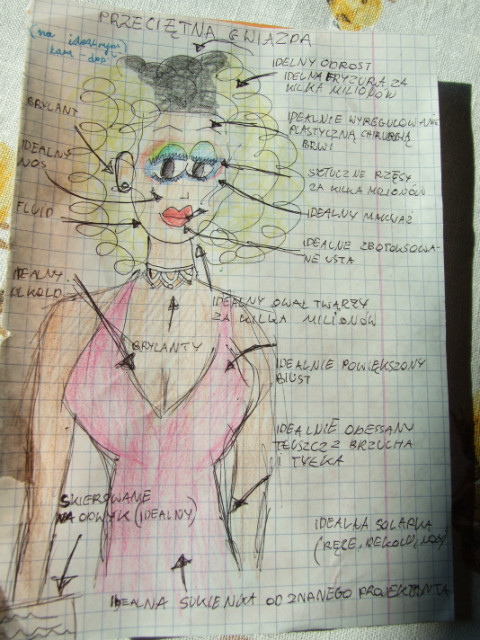 PRZECIĘTNA GWIAZDA
(na idealnym
IDELNY ODROST
IDELNA FRYZURA ZA
KILKA MILIONÓW
BRYLANT
IDEALNIE WYREGULOWANE
PLASTYCZNĄ CHIRURGIĄ
BRWI
IDEALNY
NOS
SZTUCZNE RZĘSY
ZA KILKA MILIONÓW
FLUID
IDEALNY MAKIJAŻ
IDEALNE ZBOTOKSOWA-
NE USTA
IDEALNY
DEKOLD
IDEALNY OWAL TWARZY
ZA KILKA MILIONÓW
BRYLANTY
IDEALNIE POWIĘKSZONY
BIUST
IDEALNIE ODESSANY
TŁUSZCZ Z BRZUCHA
I TYŁKA
SKIEROWANIE
NA ODWYK (IDEALNY)
IDEALNA SOLARKA
(RĘCE, DEKOLD, NOGI)
IDEALNA SUKIENKA OD ZNANEGO PROJEKTANTA